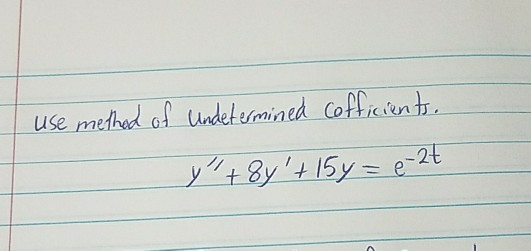 use method of undetermined cofficients.
y" + 8y' + 15y = e^-2t